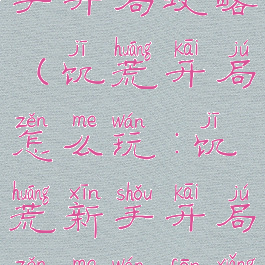 手开局攻略
jī huāng kāi jú
（饥荒开局
zěn me wán jī
怎么玩：饥
huāng xīn shǒu kāi jú
荒新手开局
zěn me wán